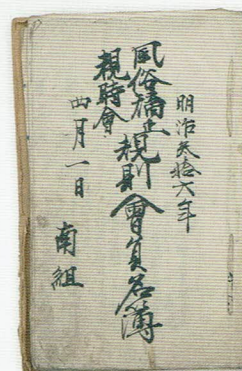 明治参拾六年
風俗矯正規則會員名簿
親時會
四月一日
南組